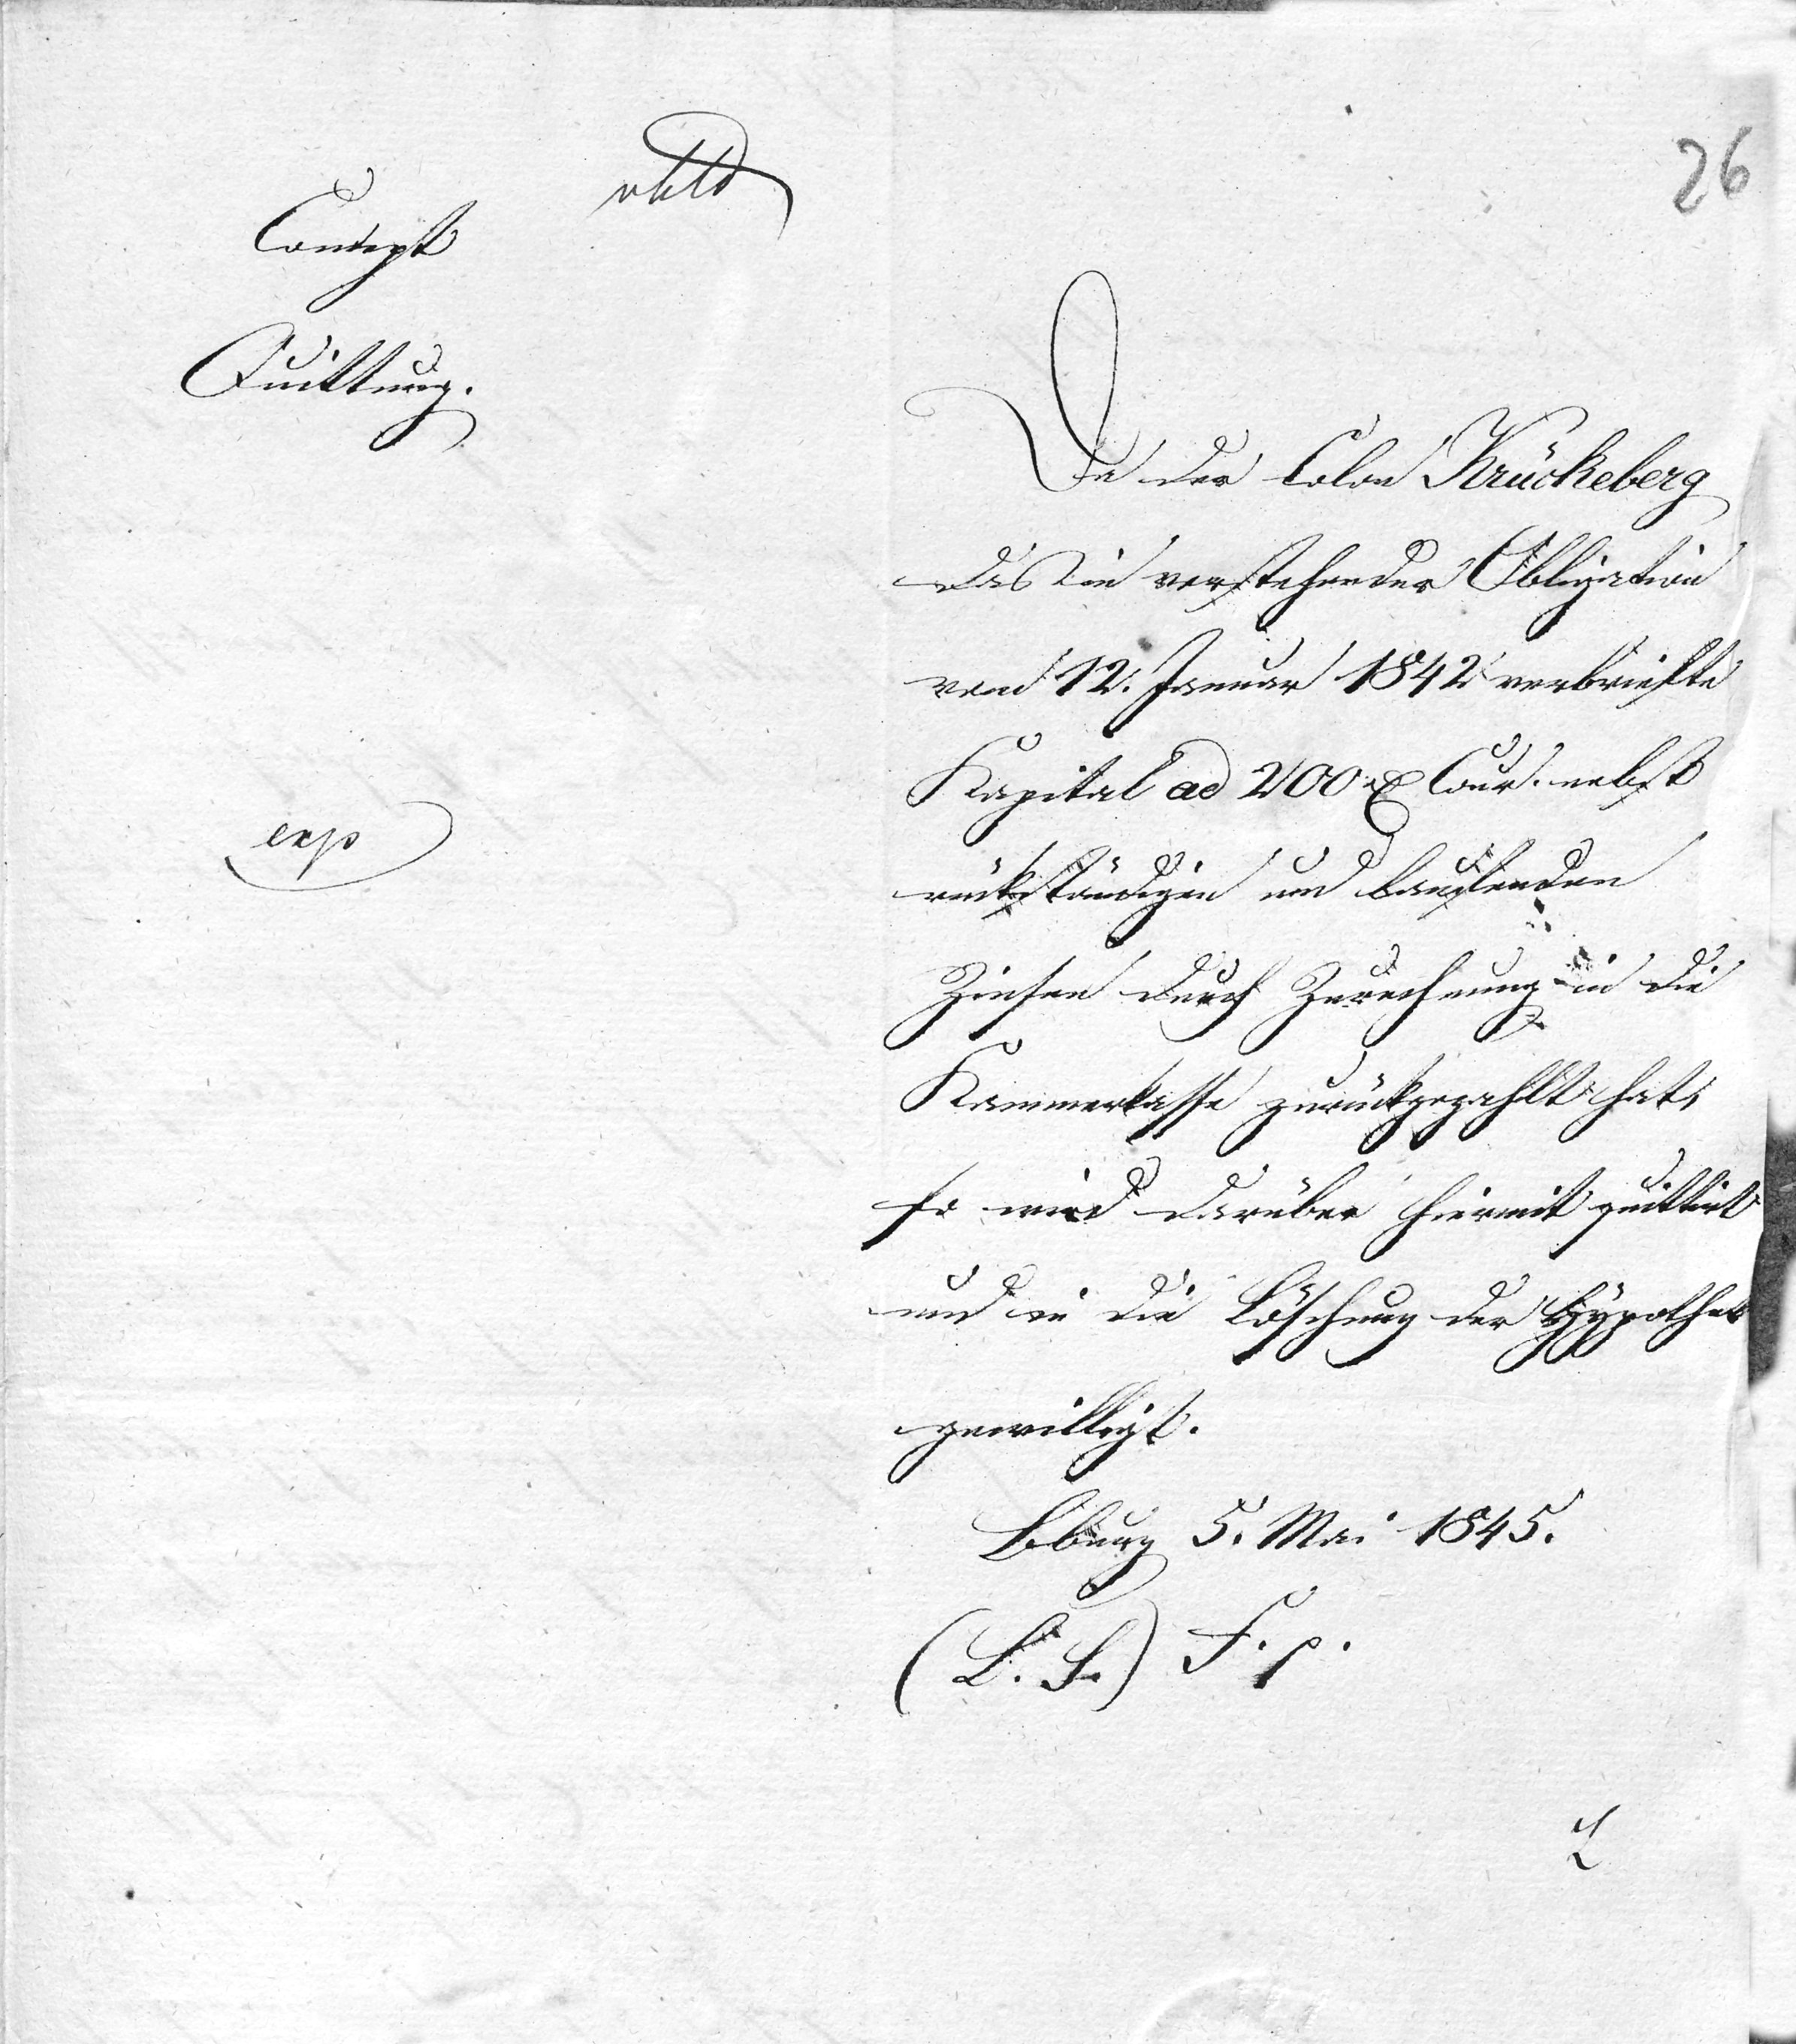 26
Concept
Quittung.
Da der Colon Krückeberg
das in vorstehender Obligation
vom 12. Januar 1842 verbriefte
Kapital ad 200 ₰ Cour. nebst
rückständigen und laufenden
Zinsen durch Zurechnung in die
Kammerkasse zurückgezahlt hat,
so wird darüber hiermit quittirt
und in die Löschung der Hypothek
gewilligt.
exp
Bburg 5. Mai 1845.
(L. S.) F. p.